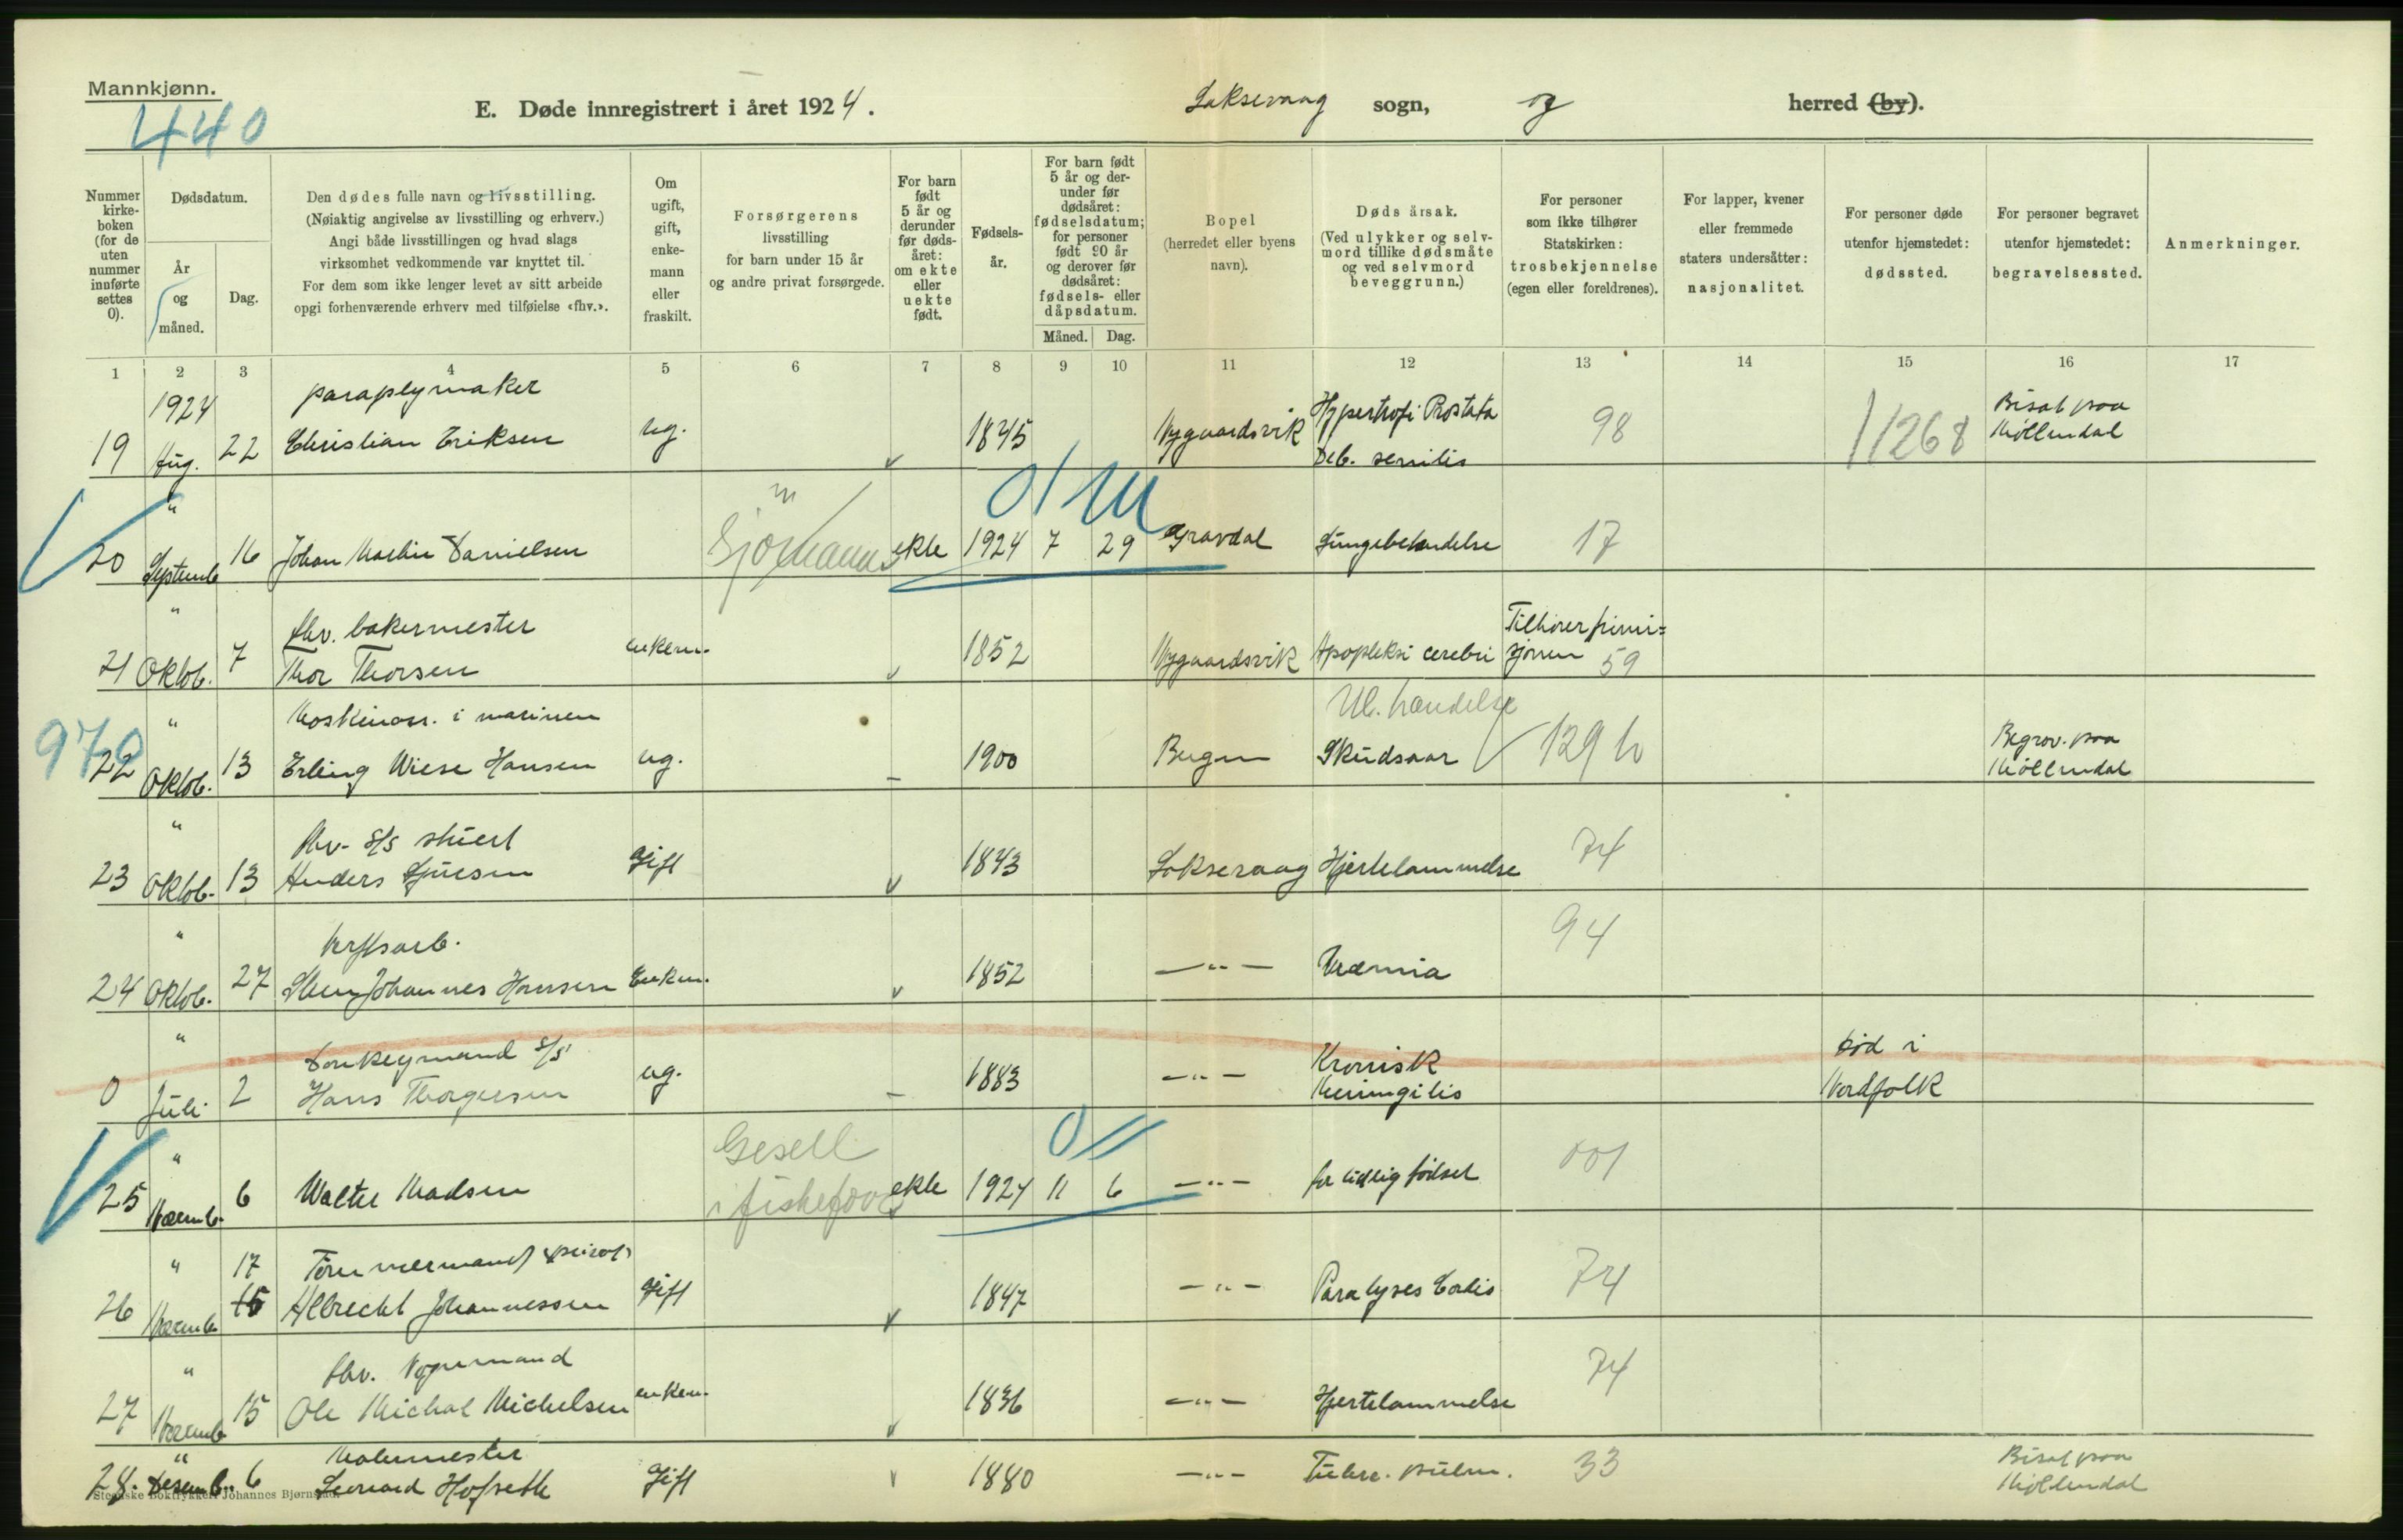 Mannkjønn.
440
E. Døde innregistrert i året 1924.
Laksevaag sogn, og herred (by).
Nummer kirke-boken (for de uten nummer innførte settes 0).
Dødsdatum.
År og måned.
Dag.
Den dødes fulle navn og livsstilling.
(Nøiaktig angivelse av livsstilling og erhverv.)
Angi både livsstillingen og hvad slags
virksomhet vedkommende var knyttet til.
For dem som ikke lenger levet av sitt arbeide
opgi forhenværende erhverv med tilføielse «fhv.».
Om ugift, gift, enke-mann eller fraskilt.
Forsørgerens
livsstilling
for barn under 15 år
og andre privat forsørgede.
For barn født 5 år og derunder før døds-året: om ekte eller uekte født.
Fødsels-år.
For barn født 5 år og der-under før dødsåret: fødselsdatum; for personer født 90 år og derover før dødsåret: fødsels- eller dåpsdatum.
Måned.
Dag.
Bopel
(herredet eller byens
navn).
Døds årsak.
(Ved ulykker og selv-
mord tillike dødsmåte
og ved selvmord
beveggrunn.)
For personer
som ikke tilhører
Statskirken:
trosbekjennelse
(egen eller foreldrenes).
For lapper, kvener
eller fremmede
staters undersåtter:
nasjonalitet.
For personer døde
utenfor hjemstedet:
dødssted.
For personer begravet
utenfor hjemstedet:
begravelsessted.
Anmerkninger.
1 2 3 4 5 6 7 8 9 10 11 12 13 14 15 16 17
1924 paraplymaker Hypertrofi Prostata Bisat paa
19 Aug. 22 Christian Eriksen ug. 1845 Nygaardsvik Deb. senilis 98 11268 Møllendal
"
20 Septemb 16 Johan Martin Danielsen Sjömann ekte 1924 7 29 Gravdal Lungebetendelse 17
" fhv. bakermester Tilhører frimi=
21 Oktob. 7 Thor Thorsen enkem. 1852 Nygaardsvik Apopleksi cerebri sjonen 59
970 " Maskinass. i marinen Ul. hændelse Begrav. paa
22 Oktob. 13 Erling Wiese Hansen ug. – 1900 Bergen Skudsaar 129 b Møllendal
" fhv. S/S stuert
23 Oktob. 13 Anders Gjuesen Gift 1843 Laksevaag Hjertelammelse 74
" Verftsarb.
24 Oktob. 27 Johannes Hansen Enkem. 1852 — " — Uræmia 94
" Donkeymand S/S Kronisk Død i
0 Juli 2 Hans Thorgersen ug. – 1883 — " — Meningitis Nordfolk
" Gesell
25 Novemb. 6 Walter Madsen i fiskeforr ekte 1924 11 6 — " — for tidlig födsel 001
" 17 Tömmermand (privat)
26 Novemb 15 Albrecht Johannessen Gift 1847 — " — Paralyses Cordis 74
" fhv. Vognmand
27 Novemb 15 Ole Michal Michelsen enkem. 1836 — " — Hjertelammelse 74
" Malermester Bisat paa
28. Desemb. 6 Leonard Hofseth Gift 1880 — " — Tuberc. pulm. 33 Møllendal
Stenske Boktrykkeri Johannes Bjørnstad.